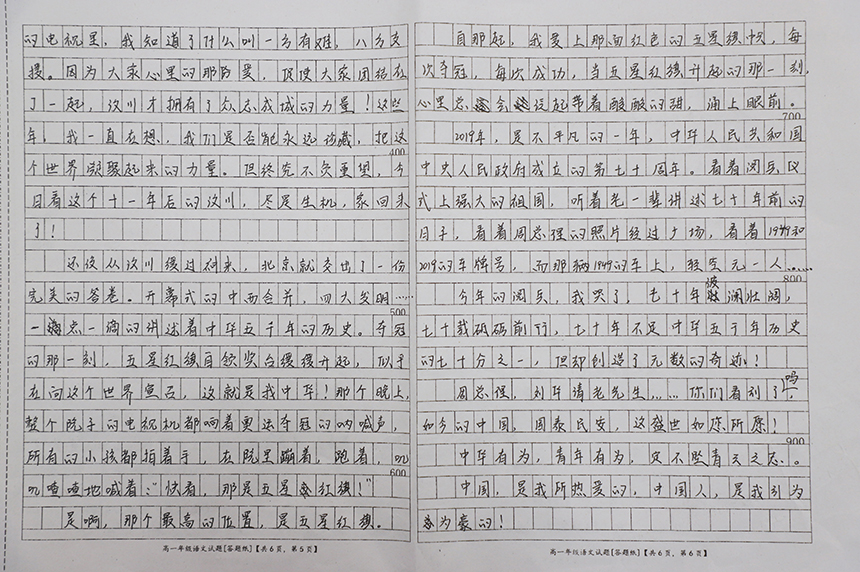 的电视里，我知道了什么叫一方有难，八方支
援。因为大家心里的那份爱，促使大家团结在
了一起，汶川才拥有了众志成城的力量！这些
年，我一直在想，我们是否能永远珍藏，把这
400
个世界凝聚起来的力量。但终究不负重望，今
日看这个十一年后的汶川，尽是生机，家回来
了！
还没从汶川缓过神来，北京就交出了一份
完美的答卷。开幕式的中西合并，四大发明……
500
一点一滴的讲述着中华五千年的历史。夺冠
的那一刻，五星红旗自领奖台缓缓升起，似乎
在向这个世界宣告，这就是我中华！那个晚上，
整个院子的电视机都响着奥运夺冠的呐喊声，
所有的小孩都拍着手，在院里蹦着，跑着，叽
600
叽喳喳地喊着："快看，那是五星红旗！"
是啊，那个最高的位置，是五星红旗。
高一年级语文试题[答题纸]【共6页，第5页】
自那起，我爱上那面红色的五星旗帜，每
次夺冠，每次成功，当五星红旗升起的那一刻，
心里总会泛起带着酸酸的甜，涌上眼前。
700
2019年，是不平凡的一年，中华人民共和国
中央人民政府成立的第七十周年。看着阅兵仪
式上强大的祖国，听着老一辈讲述七十年前的
日子，看着周总理的照片经过广场，看着1949和
2019的车牌号，而那辆1949的车上，驶空无一人……
800
今年的阅兵，我哭了，七十年波壮澜壮阔，
七十载砥砺前行，七十年不足中华五千年历史
的七十分之一，但却创造了无数的奇迹！
周总理，刘华清老先生……你们看到了吗，
如今的中国，国泰民安，这盛世如您所愿！
900
中华有为，青年有为，定不坠青云之志。
中国，是我所热爱的，中国人，是我引为
为豪的！
高一年级语文试题[答题纸]【共6页，第6页】